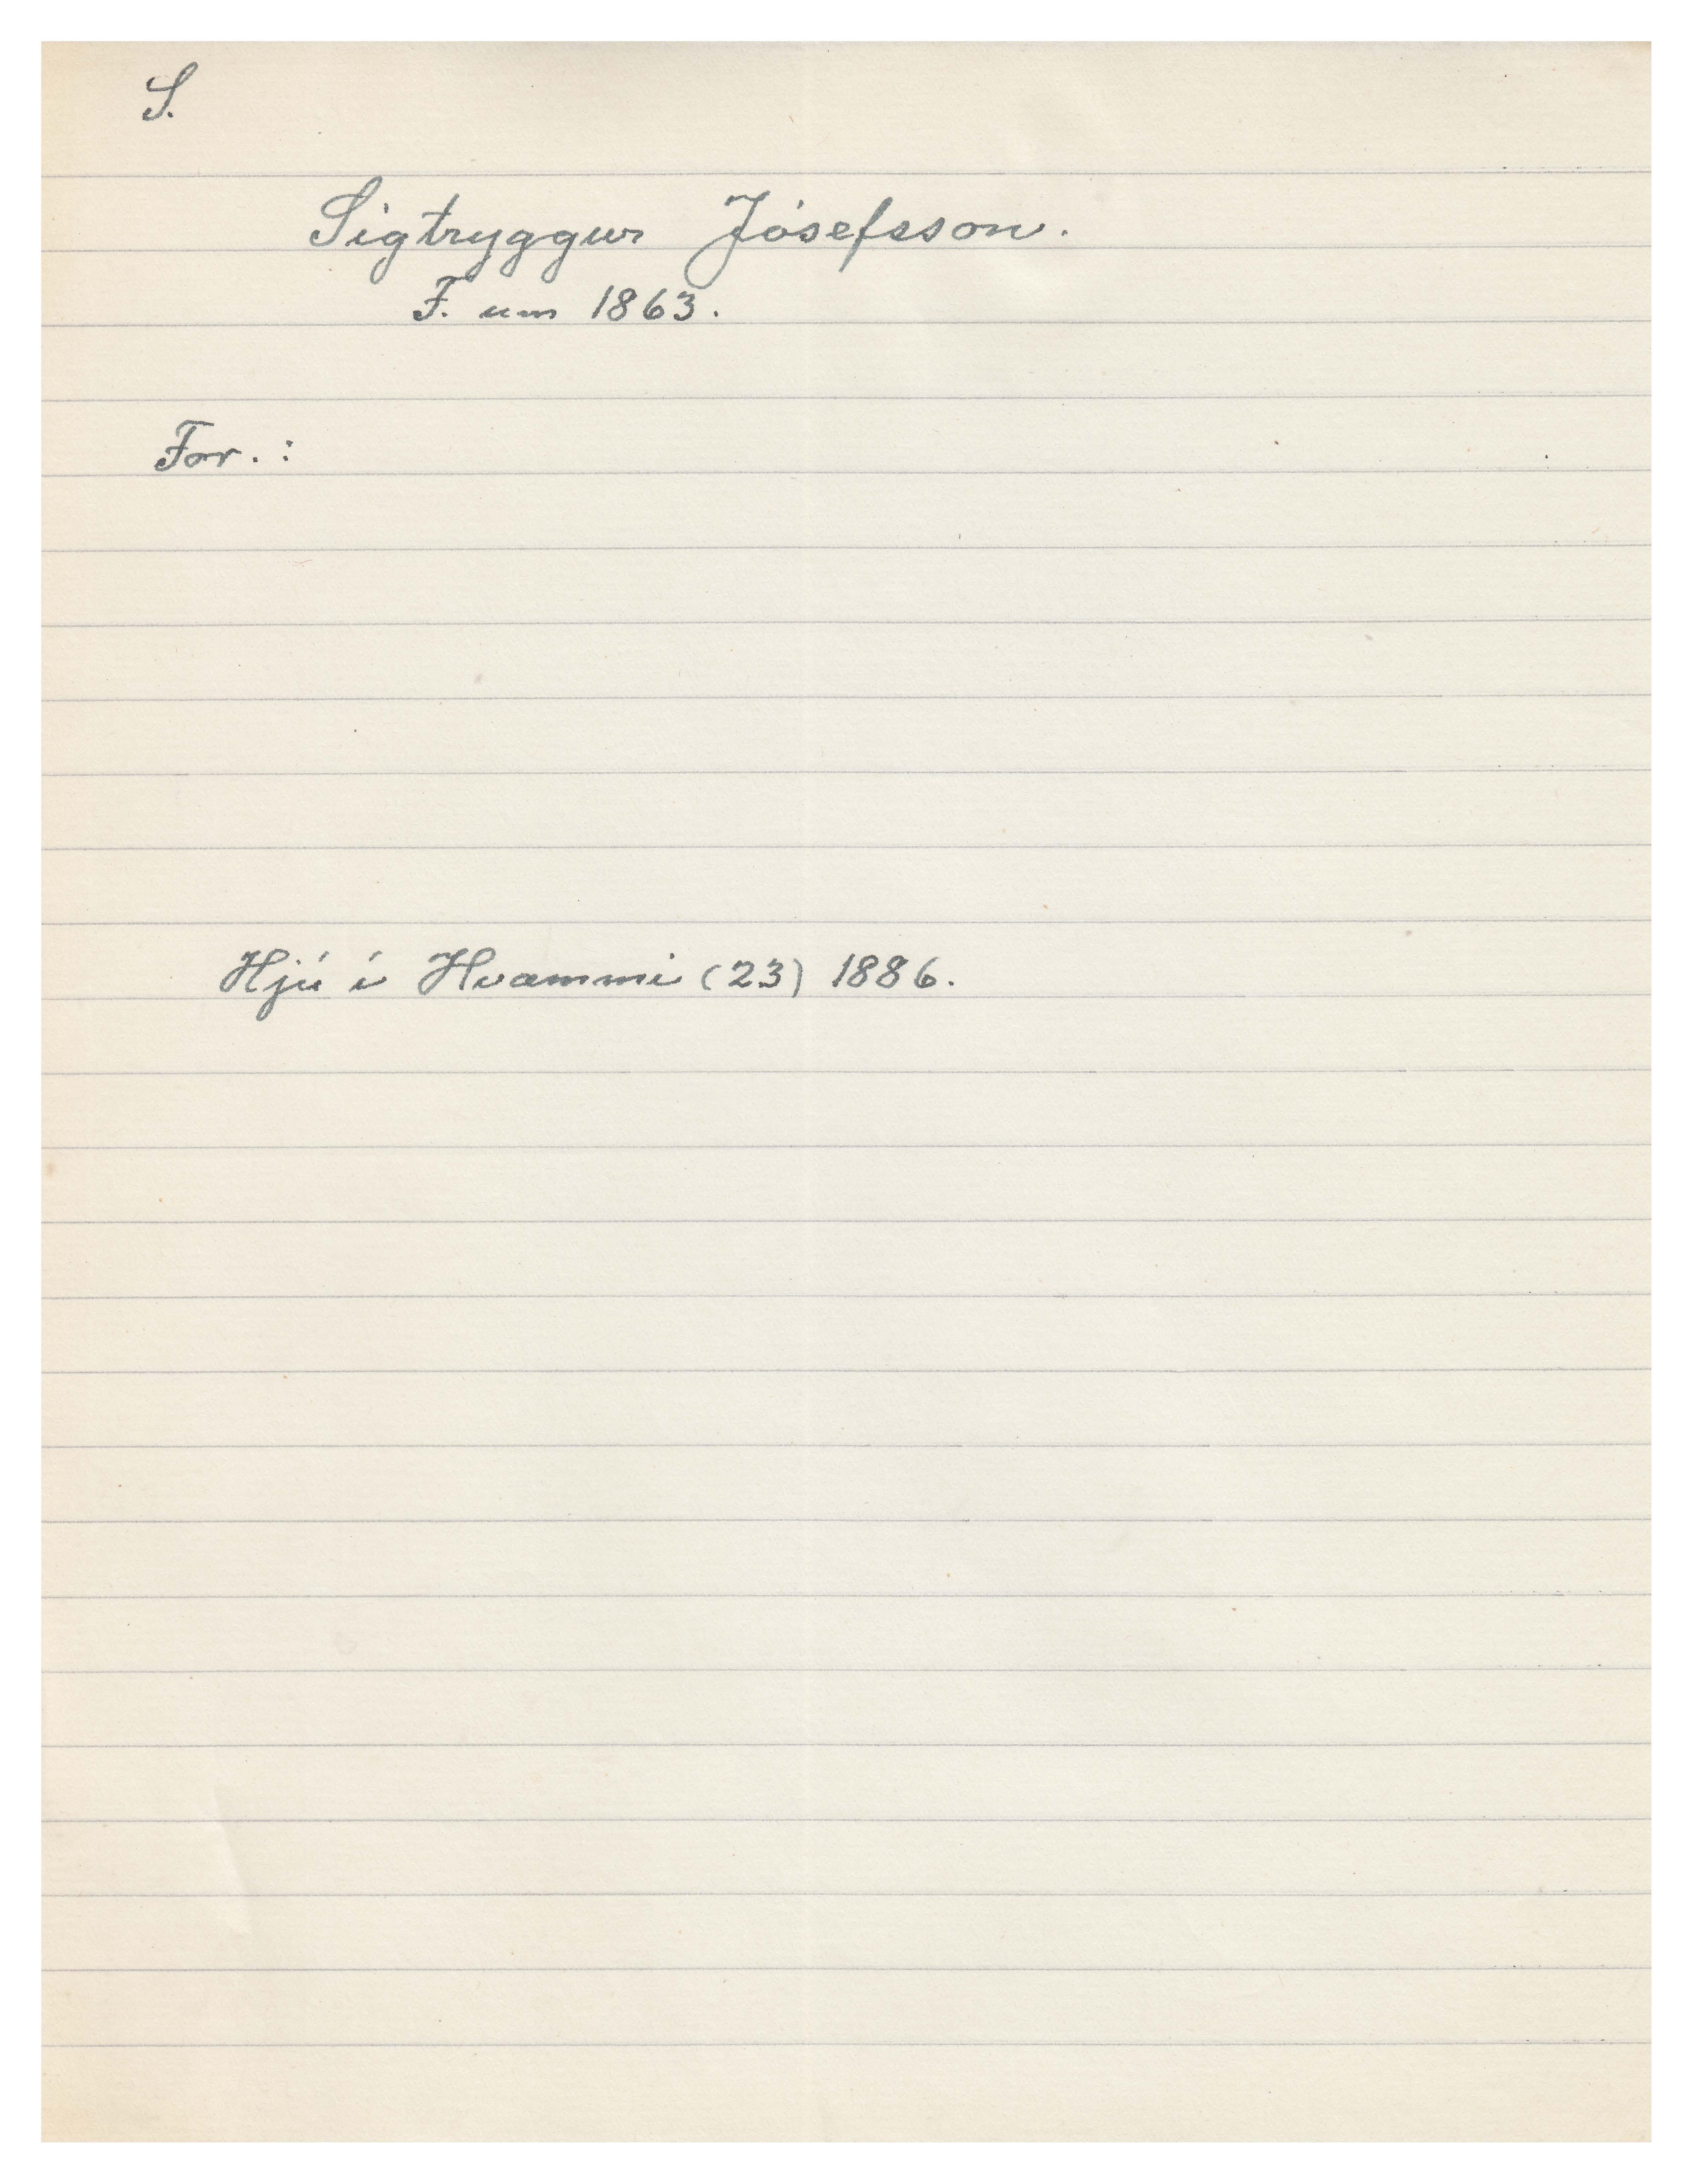 S.
Sigtryggur Jósefsson.
F. um 1863.
For. :
Hjú í Hvammi (23) 1886.